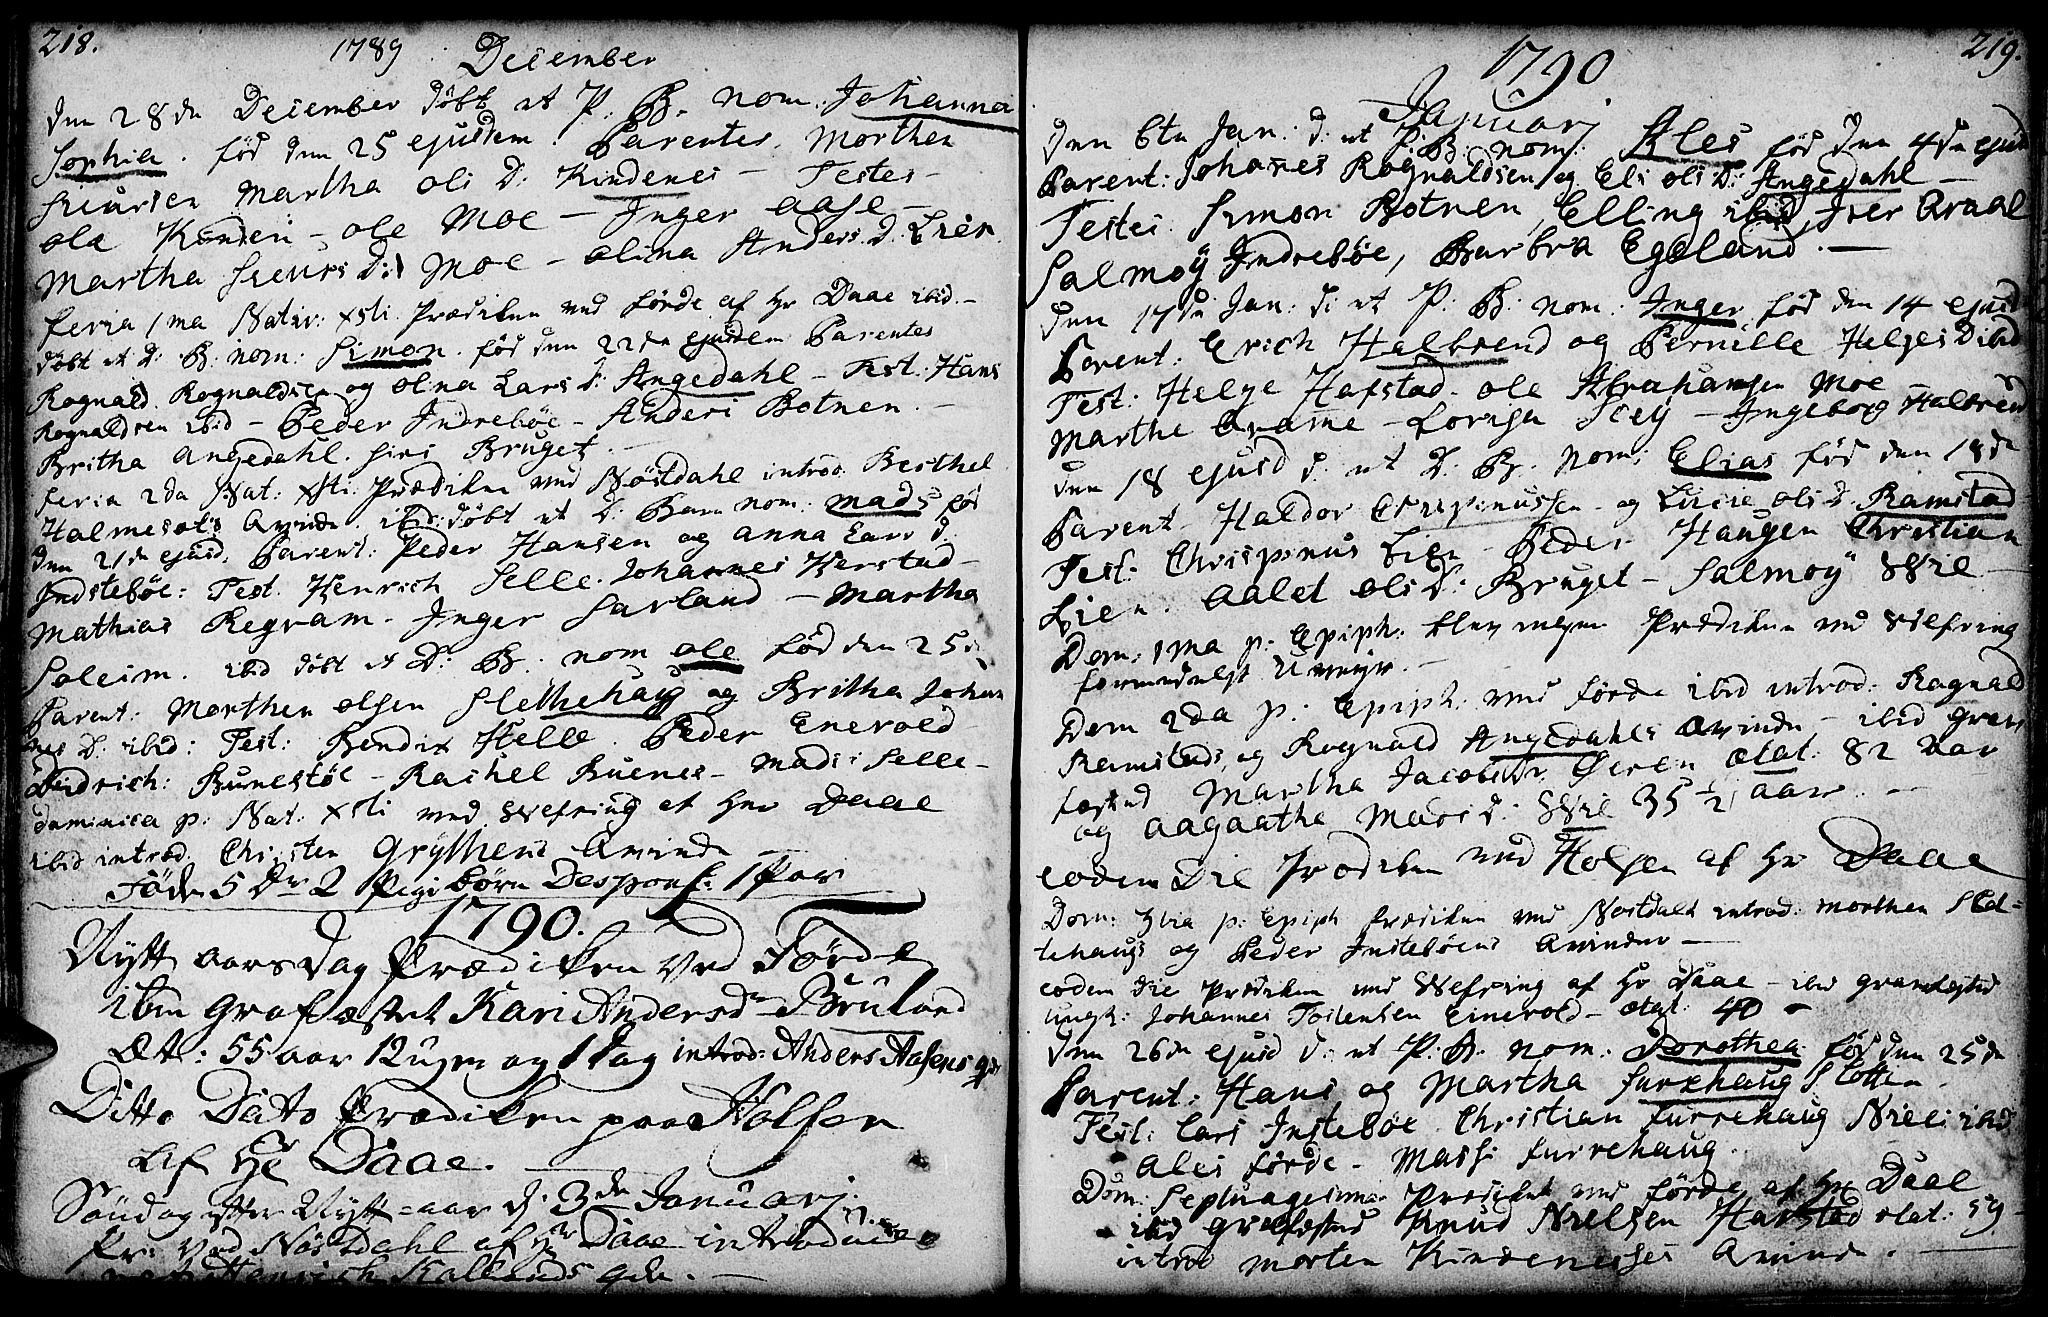 218.
1789 December
den 28de December döbt et P. B. nom. Johanna
Sophia. fød den 25 ejusdem. Parentes. Morthen
Siursen Martha Ols D: Kindenes - Testes -
Ola Kinden - Ole Moe - Inger Aase -
Martha Siurs D: Moe - Olina Anders. D. Lien.
Feria 1ma Nativ: Xsti. Prædiken ved Förde af Hr Daae ibid. -
döbt et D: B: nom: Simon. fød den 22de ejusdem Parentes
Rognald Rognaldsen og Olina Lars D: Angedahl - Test: Hans
Rognaldsen ibid - Peder Indrebøe - Anders Botnen. -
Britha Angedahl. Siri Bruget. -
Feria 2da Nat: Xsti: Prædiken ved Nöstdahl introd. Berthel
Halmesæts Qvinde. ibid: döbt et D: Barn nom: Mads fød
den 21de ejusd. Parent: Peder Hansen og Anna Lars D.
Indstebøe: Test. Henrich Selle. Johannes Herstad -
Mathias Regnam. Inger Farland - Martha
Soleim. ibid döbt et D: B: nom Ole fød den 25de
Parent: Morthen Olsen Slettehaug og Britha Johan
nes D. ibid: Test: Bendix Helle. Peder Enevold
Didrich: Bunestøl - Rachel Buenes - Mads Selle -
Dominica p: Nat: Xsti ved Wefring af Her Daae
ibid introd. Christen Gryttens Qvinde -
Föde 5 Dr. 2 Pigebörn Despons: 1 Par
1790.
Nytt aars Dag Prædiken ved Förde
ibm Grafæstet Kari Andersd. Bruland
Æt: 55 aar 12 uger og 1 Dag introd: Anders Aasens qde
Ditto Dato Prædiken paa Holsen
af Hr Daae.
Søndag efter Nytt-aar d: 3de Januarj.
Pr: ved Nöstdahl af Hr Daae introducered
Henrich Kallands qde. -
219.
1790
Januarj
Den 6te Jan: d: et P: B: nom: Ales fød den 4de ejusd
Parent: Johanes Rognaldsen og Eli Ols D: Angedahl -
Testes Simon Botnen, Elling ibid, Iver Qvaal
Salmoÿ Indrebøe, Barbra Egeland. -
Den 17de Jan: d: et P: B: nom: Inger fød den 14 ejusd
Parent: Erich Halbrend og Pernille Helges D ibid
Test: Helge Hafstad. Ole Abrahamsen Moe
Marthe Qvame - Lorisa Sey - Ingeborg Halbrend
Den 18 ejusd d: et D: B: nom: Elias fød den 18de
Parent Haldor Chrispinussen og Lucie Ols D. Ramstad
Test: Chrispinus Lien - Peder Haugen Christian
Lien. Aalet Ols D: Bruget - Salmoÿ Schie -
Dom: 1ma p: Epiph: blev ingen Prædiken ved Wefring
formedelst Uveyr. -
Dom 2da p: Epiph: ved Förde ibid introd: Rognald
Ramstads og Rognald Angedahls Qvinder - ibid græs
fæsted Martha Jacobsdr. Øeren ætat: 82 aar
og Aagaathe Mads D: Schie 35 1/2 aar. -
Eodem Die Prædiken ved Holsen af Hr Daae
Dom: 3tia p: Epiph Prædiken ved Nöstdahl introd: Morthen Slet=
tehaugs og Peder Instebøens Qvinder -
Eodem Die Prædiken ved Wefring af Hr Daae - ibid græsfæsted
ungk: Johannes Torstensen Einevold - ætat: 40 -
Den 26de ejusd d: et P: B: nom: Dorothea fød den 25de
Parent: Hans og Martha Furrehaug Slotten.
Test: Lars Instebøe. Christian Furrehaug Niels ibid
Ales Förde - Massi Furrehaug.
Dom: Septuagesima Prædiken ved Förde af Hr Daae
ibid græsfæsted Knud Nielsen Hafstad ætat: 59 -
introd Morten Kindenesses Qvinde. -